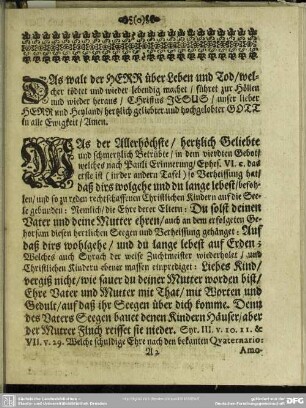 (o)
Das walt der HERR über Leben und Tod/wel-
cher tödtet und wieder lebendig machet / führet zur Höllen
und wieder heraus / Christus JESUS / unser lieber
HERR und Heyland/ hertzlich geliebter und hochgelobter GOTT
in alle Ewigkeit / Amen.
Was der Allerhöchste / hertzlich Geliebte
und schmertzlich Betrübte / in dem vierdten Gebot/
welches nach Pauli Erinnerung / Ephes. VI. 2. das
erste ist (in der andern Tafel) so Verheissung hat/
daß dirs wolgehe und du lange lebest/ befoh-
len/ und so zu reden rechtschaffenen Christlichen Kindern auf die See-
le gebunden: Nemlich/ die Ehre derer Eltern: Du solst deinen
Vater und deine Mutter ehren/ auch an dem erfolgten Ge-
horsam diesen herrlichen Seegen und Verheissung gehänget: Auf
daß dirs wohlgehe / und du lange lebest auf Erden;
Welches auch Syrach der weise Zuchtmeister wiederholet / und
Christlichen Kindern ebener massen einprediget: Liebes Kind/
vergiß nicht/wie sauer du deiner Mutter worden bist/
Ehre Vater und Mutter mit That/ mit Worten und
Gedult/ auf daß ihr Seegen über dich komme. Denn
des Vaters Seegen bauet denen Kindern Häuser/aber
der Mutter Fluch reisset sie nieder. Syr. III. v. 10. 11. &
VII. v. 29. Welche schuldige Ehre nach den bekanten Quaternario:
A 2
Amo-